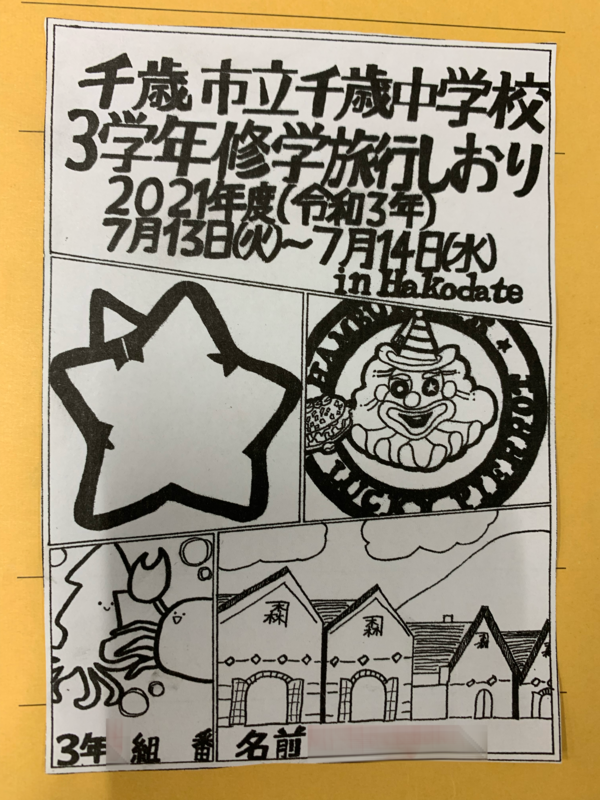 千歳市立千歳中学校
3学年修学旅行しおり
2021年度(令和3年)
7月13日(火)～7月14日(水)
in Hakodate
LUCKY PIERROT
森
森
3年 組 番 名前